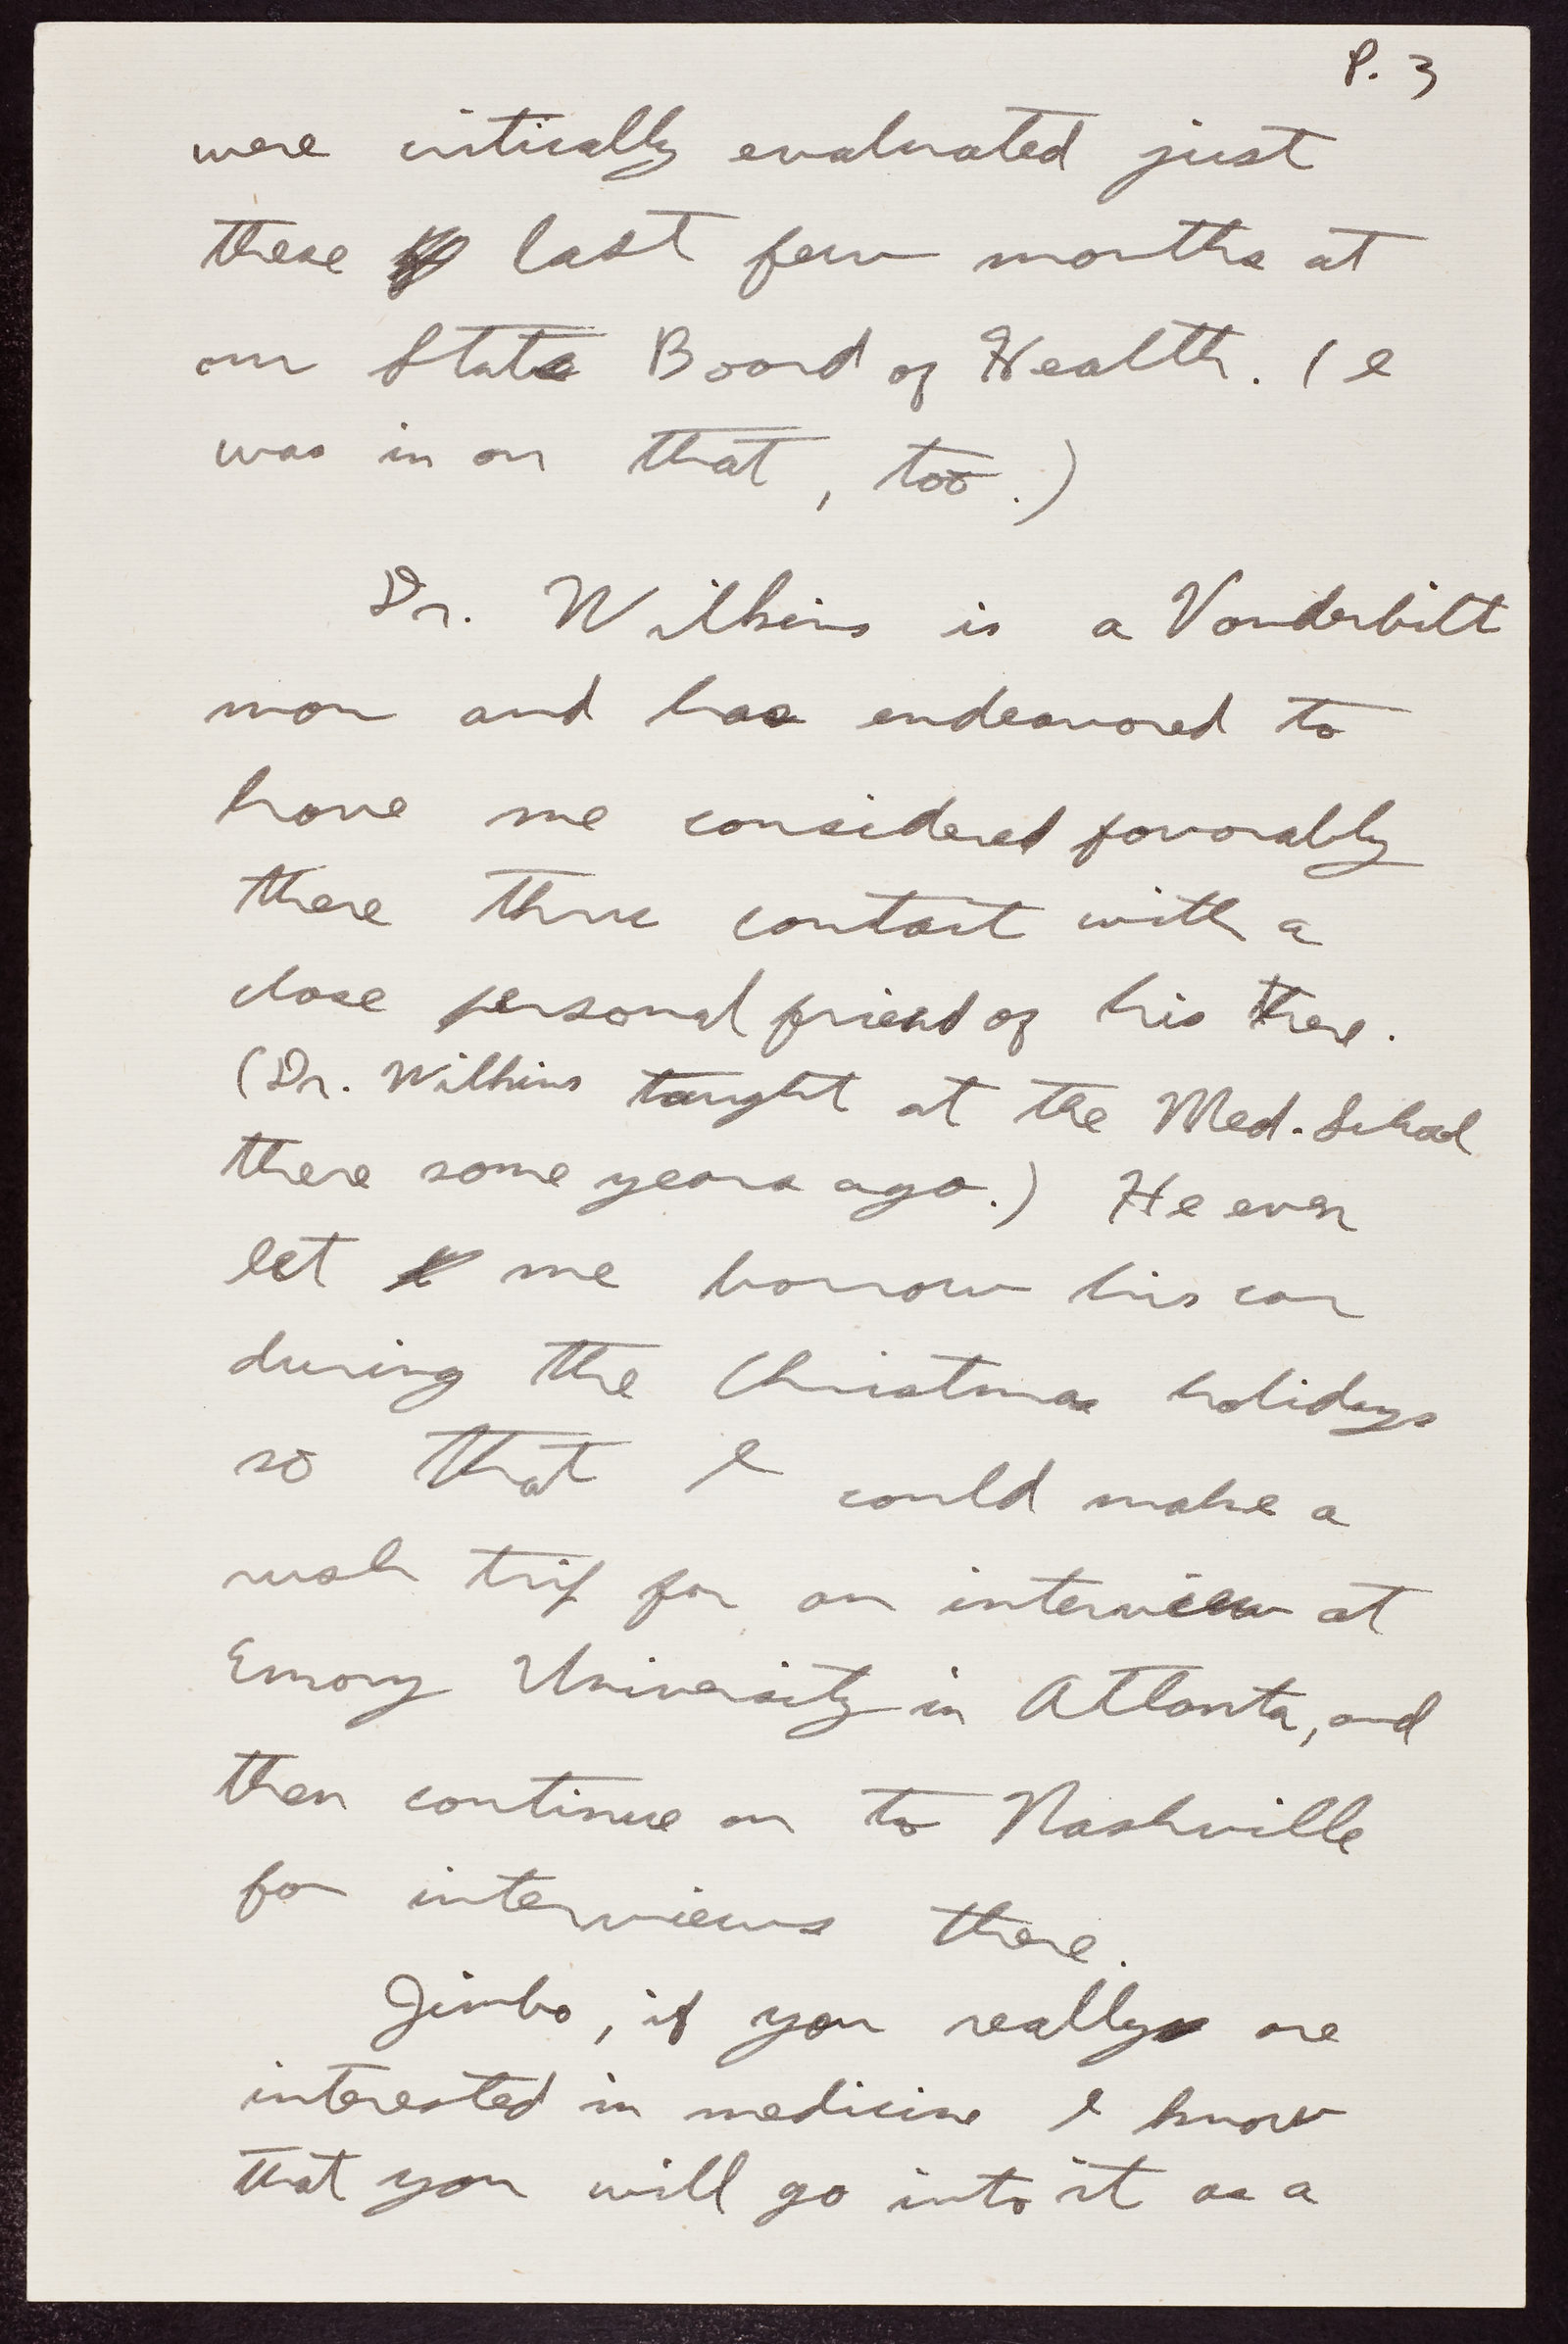 P. 3
were critically evaluated just
these last few months at
our State Board of Health. (I
was in on that, too.)
Dr. Wilkins is a Vanderbilt
man and has endeavored to
have me considered favorably
there thru contact with a
close personal friend of his there.
(Dr. Wilkins taught at the Med. School
there some years ago.) He even
let me borrow his car
during the Christmas holidays
so that I could make a
rush trip for an interview at
Emory University in Atlanta, and
then continue on to Nashville
for interviews there.
Jimbo, if you really are
interested in medicine I know
that you will go into it as a